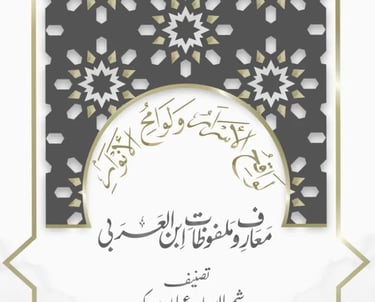 لواقح الأسرار ولوامح الأنوار
معارف و ملفوظات ابن العربی
تصنیف